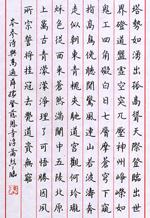 塔勢如湧出孤高聳天宮登臨出世
界磴道盤虛空突兀壓神州崢嶸如
鬼工四角礙白日七層摩蒼穹下窺
指高鳥俯聽聞驚風連山若波濤奔
走似朝東青槐夾馳道宮觀何玲瓏
秋色從西來蒼然滿關中五陵北原
上萬古青濛濛淨理了可悟勝因夙
所宗誓將挂冠去覺道資無窮
岑參詩與高適薛據登慈恩寺浮圖